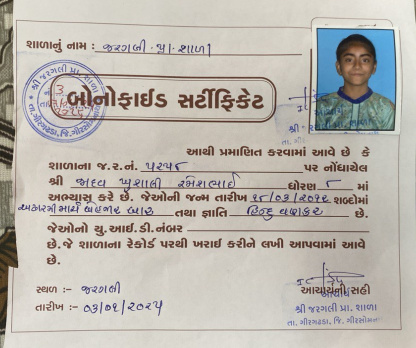 શાળાનું નામ : જરગલી પ્રા. શાળા
શ્રી જરગલી પ્રા. શાળા
તા. ગીરગઢડા, જિ. ગીરસોમનાથ
બોનોફાઈડ સર્ટીફિકેટ
આથી પ્રમાણિત કરવામાં આવે છે કે
શાળાના જ.ર.નં. ૫૨૫૮ પર નોંધાયેલ
શ્રી જાદવ ખુશાલી રમેશભાઈ ધોરણ ૮ માં
અભ્યાસ કરે છે. જેઓની જન્મ તારીખ ૧૮/૦૩/૨૦૧૨ શબ્દોમાં
અઢારમી માર્ચ બે હજાર બાર તથા જ્ઞાતિ હિન્દુ વણકર છે.
જેઓનો યુ.આઈ.ડી.નંબર
છે.જે શાળાના રેકોર્ડ પરથી ખરાઈ કરીને લખી આપવામાં આવે
છે.
સ્થળ :- જરગલી
આચાર્યની સહી
તારીખ :- ૦૩/૦૧/૨૦૨૫
આચાર્ય
શ્રી જરગલી પ્રા. શાળા
તા. ગીરગઢડા, જિ. ગીરસોમનાથ